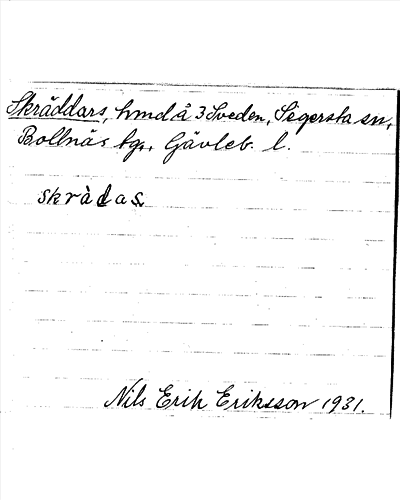 Skräddars, hmd å 3 Sveden, Segersta sn,
Bollnäs tg., Gävleb. l.
skrädas
Nils Erik Eriksson 1931.